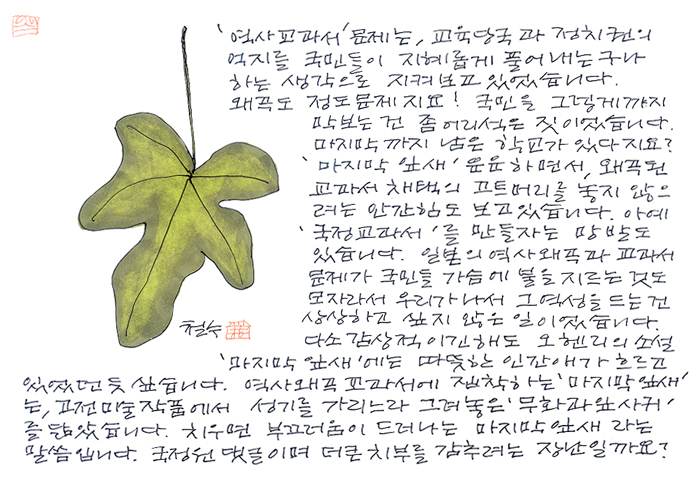 '역사교과서' 문제는, 교육당국과 정치권의
억지를 국민들이 지혜롭게 풀어내는구나
하는 생각으로 지켜보고 있었습니다.
왜곡도 정도문제지요! 국민을 그렇게까지
막보는 건 좀 어리석은 짓이었습니다.
마지막까지 남은 학교가 있다지요?
'마지막 잎새' 운운하면서, 왜곡된
교과서 채택의 끄트머리를 놓지 않으
려는 안간힘도 보고있습니다. 아예
'국정교과서'를 만들자는 망발도
있습니다. 일본의 역사왜곡과 교과서
문제가 국민들 가슴에 불을 지르는 것도
모자라서 우리가 나서 그 역성을 드는 건
상상하고 싶지 않은 일이었습니다.
철수
다소 감상적이긴해도 오헨리의 소설
'마지막 잎새'에는 따뜻한 인간애가 흐르고
있었던 듯 싶습니다. 역사왜곡 교과서에 집착하는 '마지막 잎새'
는, 고전미술작품에서 성기를 가리느라 그려놓은 '무화과 잎사귀'
를 닮았습니다. 치우면 부끄러움이 드러나는 마지막 잎새 라는
말씀 입니다. 국정원 댓글이며 더 큰 치부를 감추려는 장난일까요?